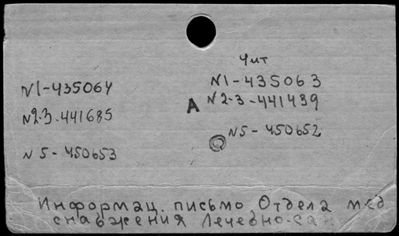 Чит
N1-435064
N1-435063
N2-3-441685
А N2-3-441439
N5-450652
N5-450653
Информац. письмо Отдела мед
снабжения Лечебно-сан